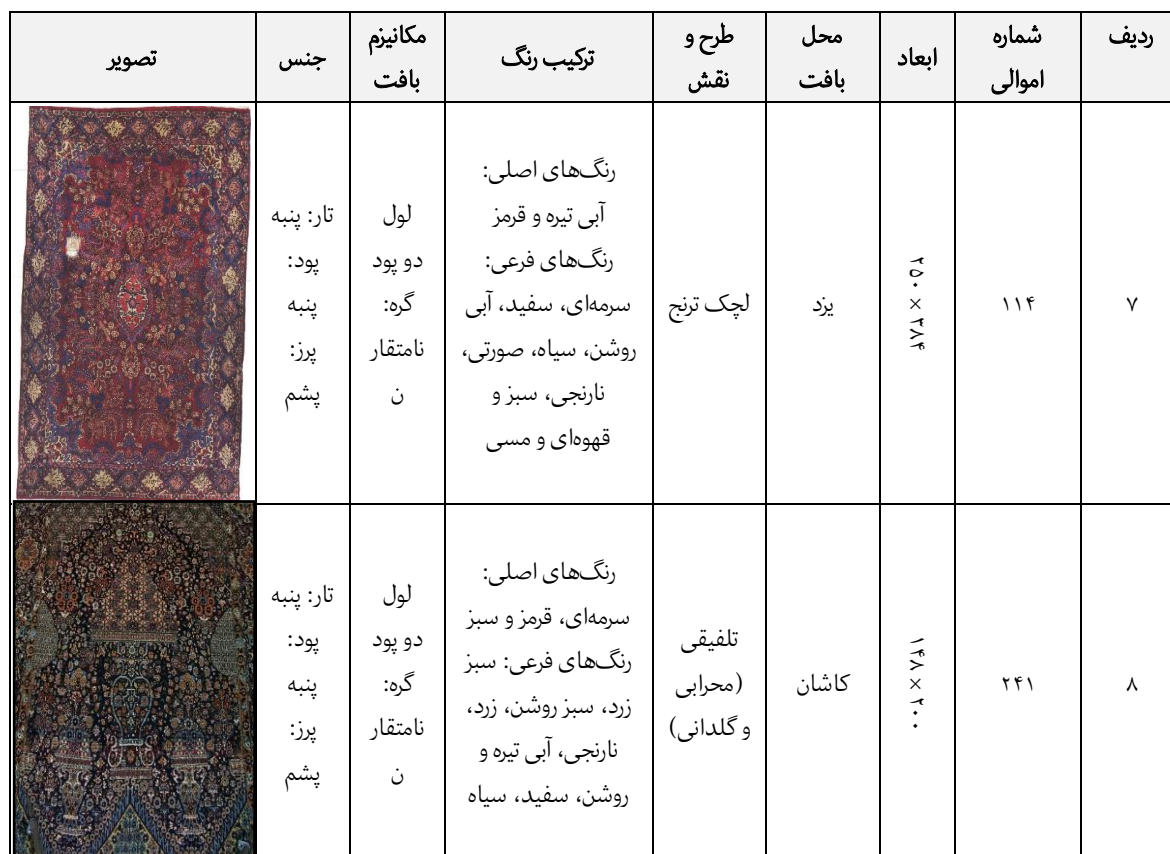 ردیف
شماره
اموالی
ابعاد
محل
بافت
طرح و
نقش
ترکیب رنگ
مکانیزم
بافت
جنس
تصویر
۷
۱۱۴
۲۵۰ × ۳۸۴
یزد
لچک ترنج
رنگ‌های اصلی:
آبی تیره و قرمز
رنگ‌های فرعی:
سرمه‌ای، سفید، آبی
روشن، سیاه، صورتی،
نارنجی، سبز و
قهوه‌ای و مسی
لول
دو پود
گره:
نامتقار
ن
تار: پنبه
پود:
پنبه
پرز:
پشم
۸
۲۴۱
۱۴۸ × ۲۰۰
کاشان
تلفیقی
(محرابی
و گلدانی)
رنگ‌های اصلی:
سرمه‌ای، قرمز و سبز
رنگ‌های فرعی: سبز
زرد، سبز روشن، زرد،
نارنجی، آبی تیره و
روشن، سفید، سیاه
لول
دو پود
گره:
نامتقار
ن
تار: پنبه
پود:
پنبه
پرز:
پشم